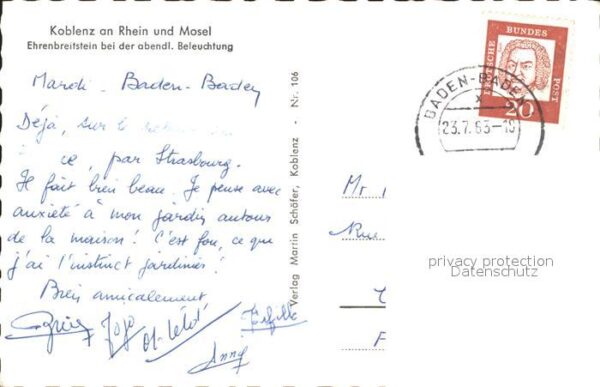 Koblenz an Rhein und Mosel
Ehrenbreitstein bei der abendl. Beleuchtung
Mardi - Baden-Baden
Déjà, sur le
ce, par Strasbourg.
Il fait bien beau. Je pense avec
anxiété à mon jardin autour
de la maison! C'est fou, ce que
j'ai l'instinct jardinier!
Bien amicalement
Jojo
Anny
Verlag Martin Schöfer, Koblenz - Nr. 106
DEUTSCHE BUNDESPOST
20
BADEN-BADEN
x
23.7.63-18
Mr
Rue
privacy protection
Datenschutz